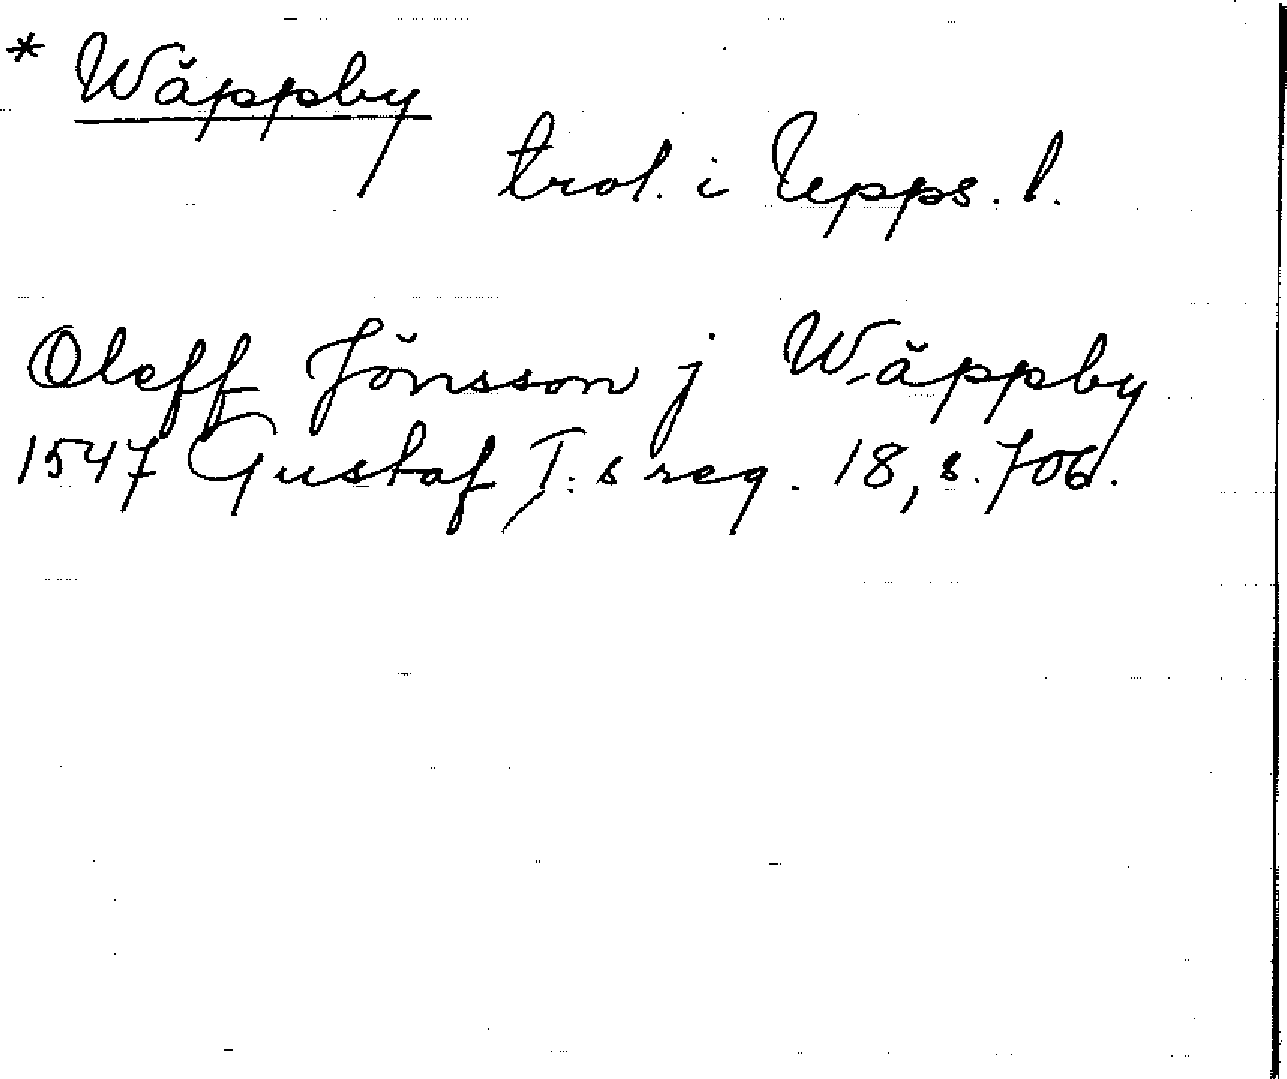 * Wäppby
trol. i Upps. l.
Oleff Jönsson j Wäppby
1547 Gustaf I:s reg. 18, s. 706.